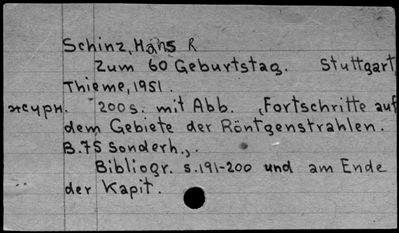 Schinz, Hans R
Zum 60 Geburtstag. Stuttgart,
Thieme, 1951.
журн. 200 s. mit Abb. „Fortschritte auf
dem Gebiete der Röntgenstrahlen.
B. 75 Sonderh.„.
Bibliogr. s. 191-200 und am Ende
der Kapit.